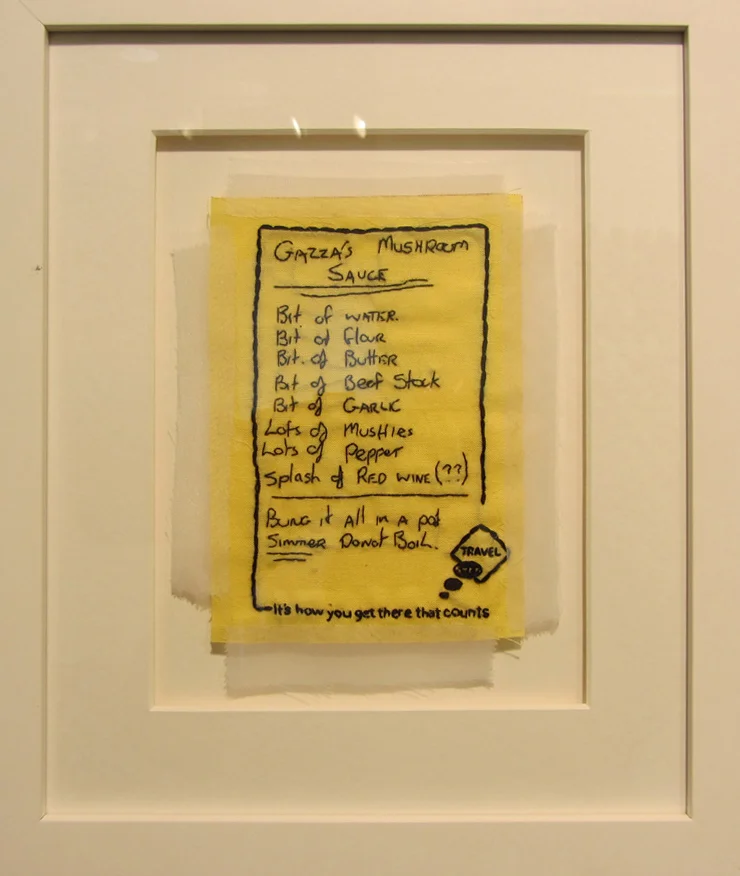 GAZZA'S MUSHROOM
SAUCE
Bit of WATER.
Bit of flour
Bit of BUTTER
Bit of Beef Stock
Bit of GARLIC
Lots of MUSHIES
Lots of Pepper
Splash of RED WINE (??)
BUNG it All in A pot
SIMMER Donot BOIL.
TRAVEL
It's how you get there that counts